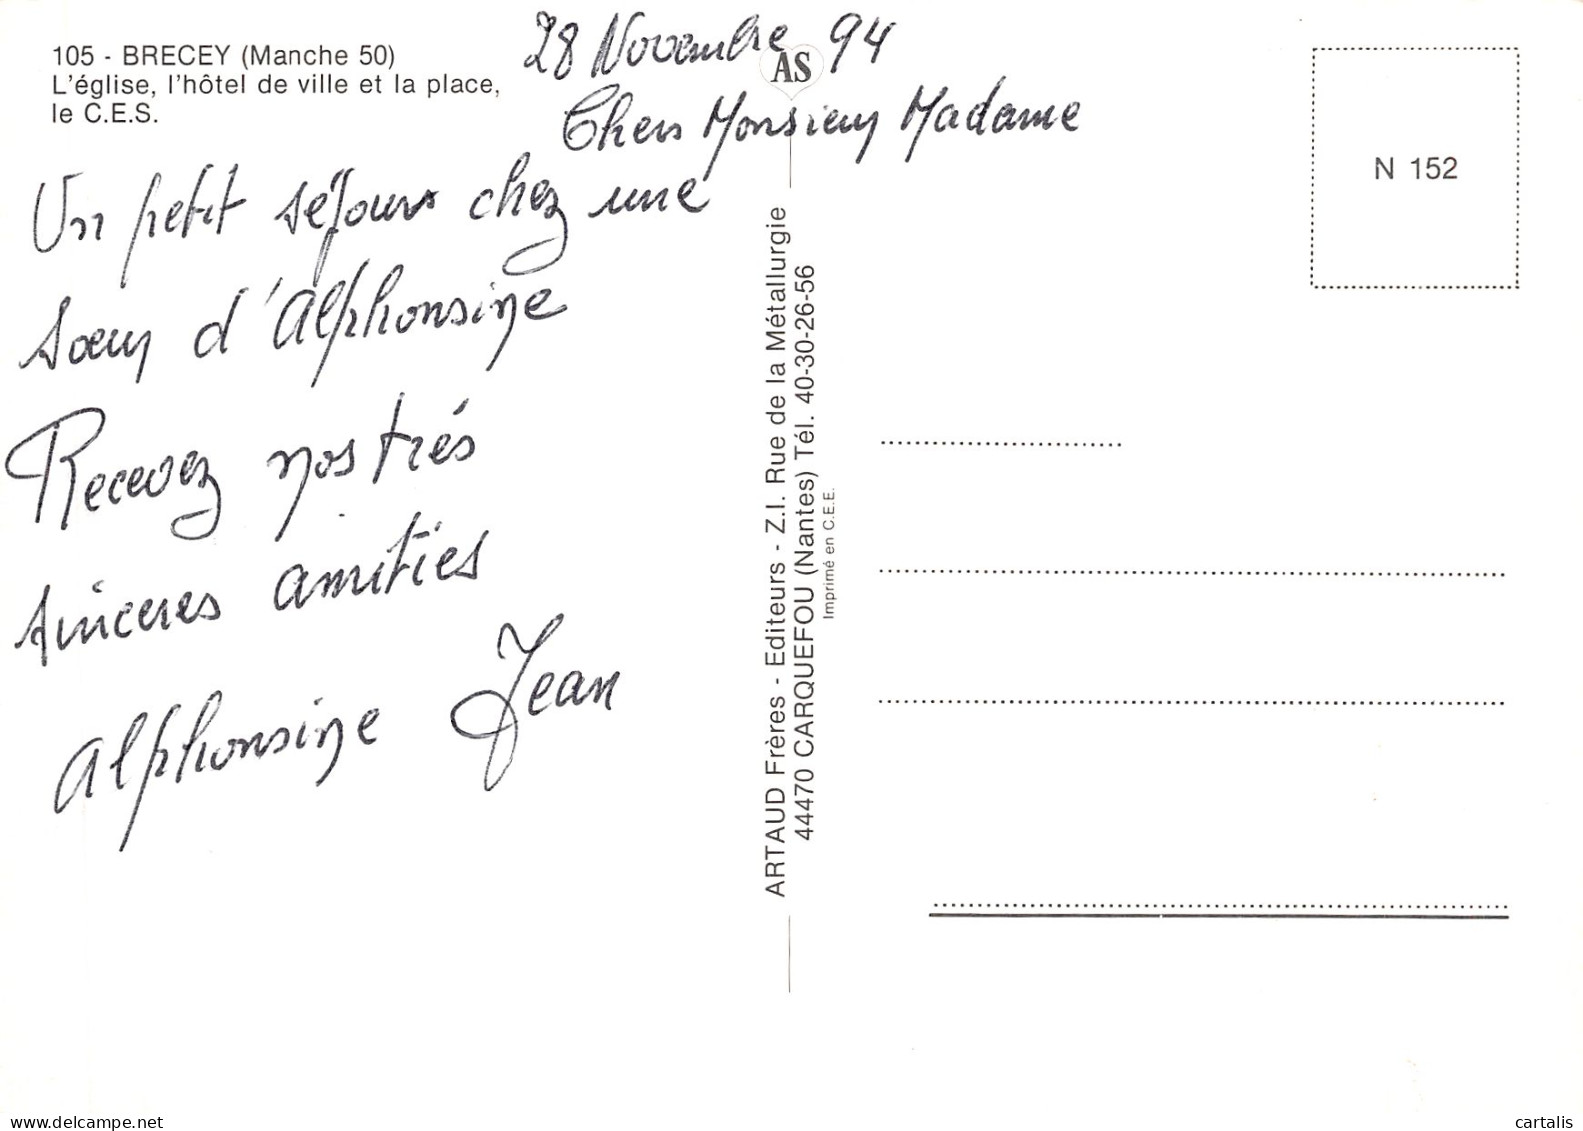 105 - BRECEY (Manche 50)
L'église, l'hôtel de ville et la place,
le C.E.S.
28 Novembre 94
AS
Chers Monsieur Madame
Un petit séjour chez une
soeur d'Alphonsine
Recevez nos trés
sinceres amitiés
Alphonsine Jean
ARTAUD Frères - Editeurs - Z.I. Rue de la Métallurgie
44470 CARQUEFOU (Nantes) Tél. 40-30-26-56
Imprimé en C.E.E.
N 152
www.delcampe.net
cartalis